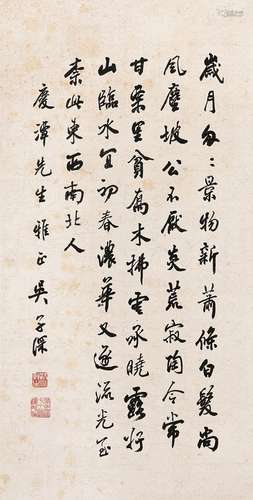 歲月匆々景物新蕭條白髮尚
風塵坡公不厭炎荒寂陶令常
甘栗里貧喬木拂雲承曉露
山臨水宜初春濃華又逐流光
柰此東西南北人
慶澤先生雅正 吳子深